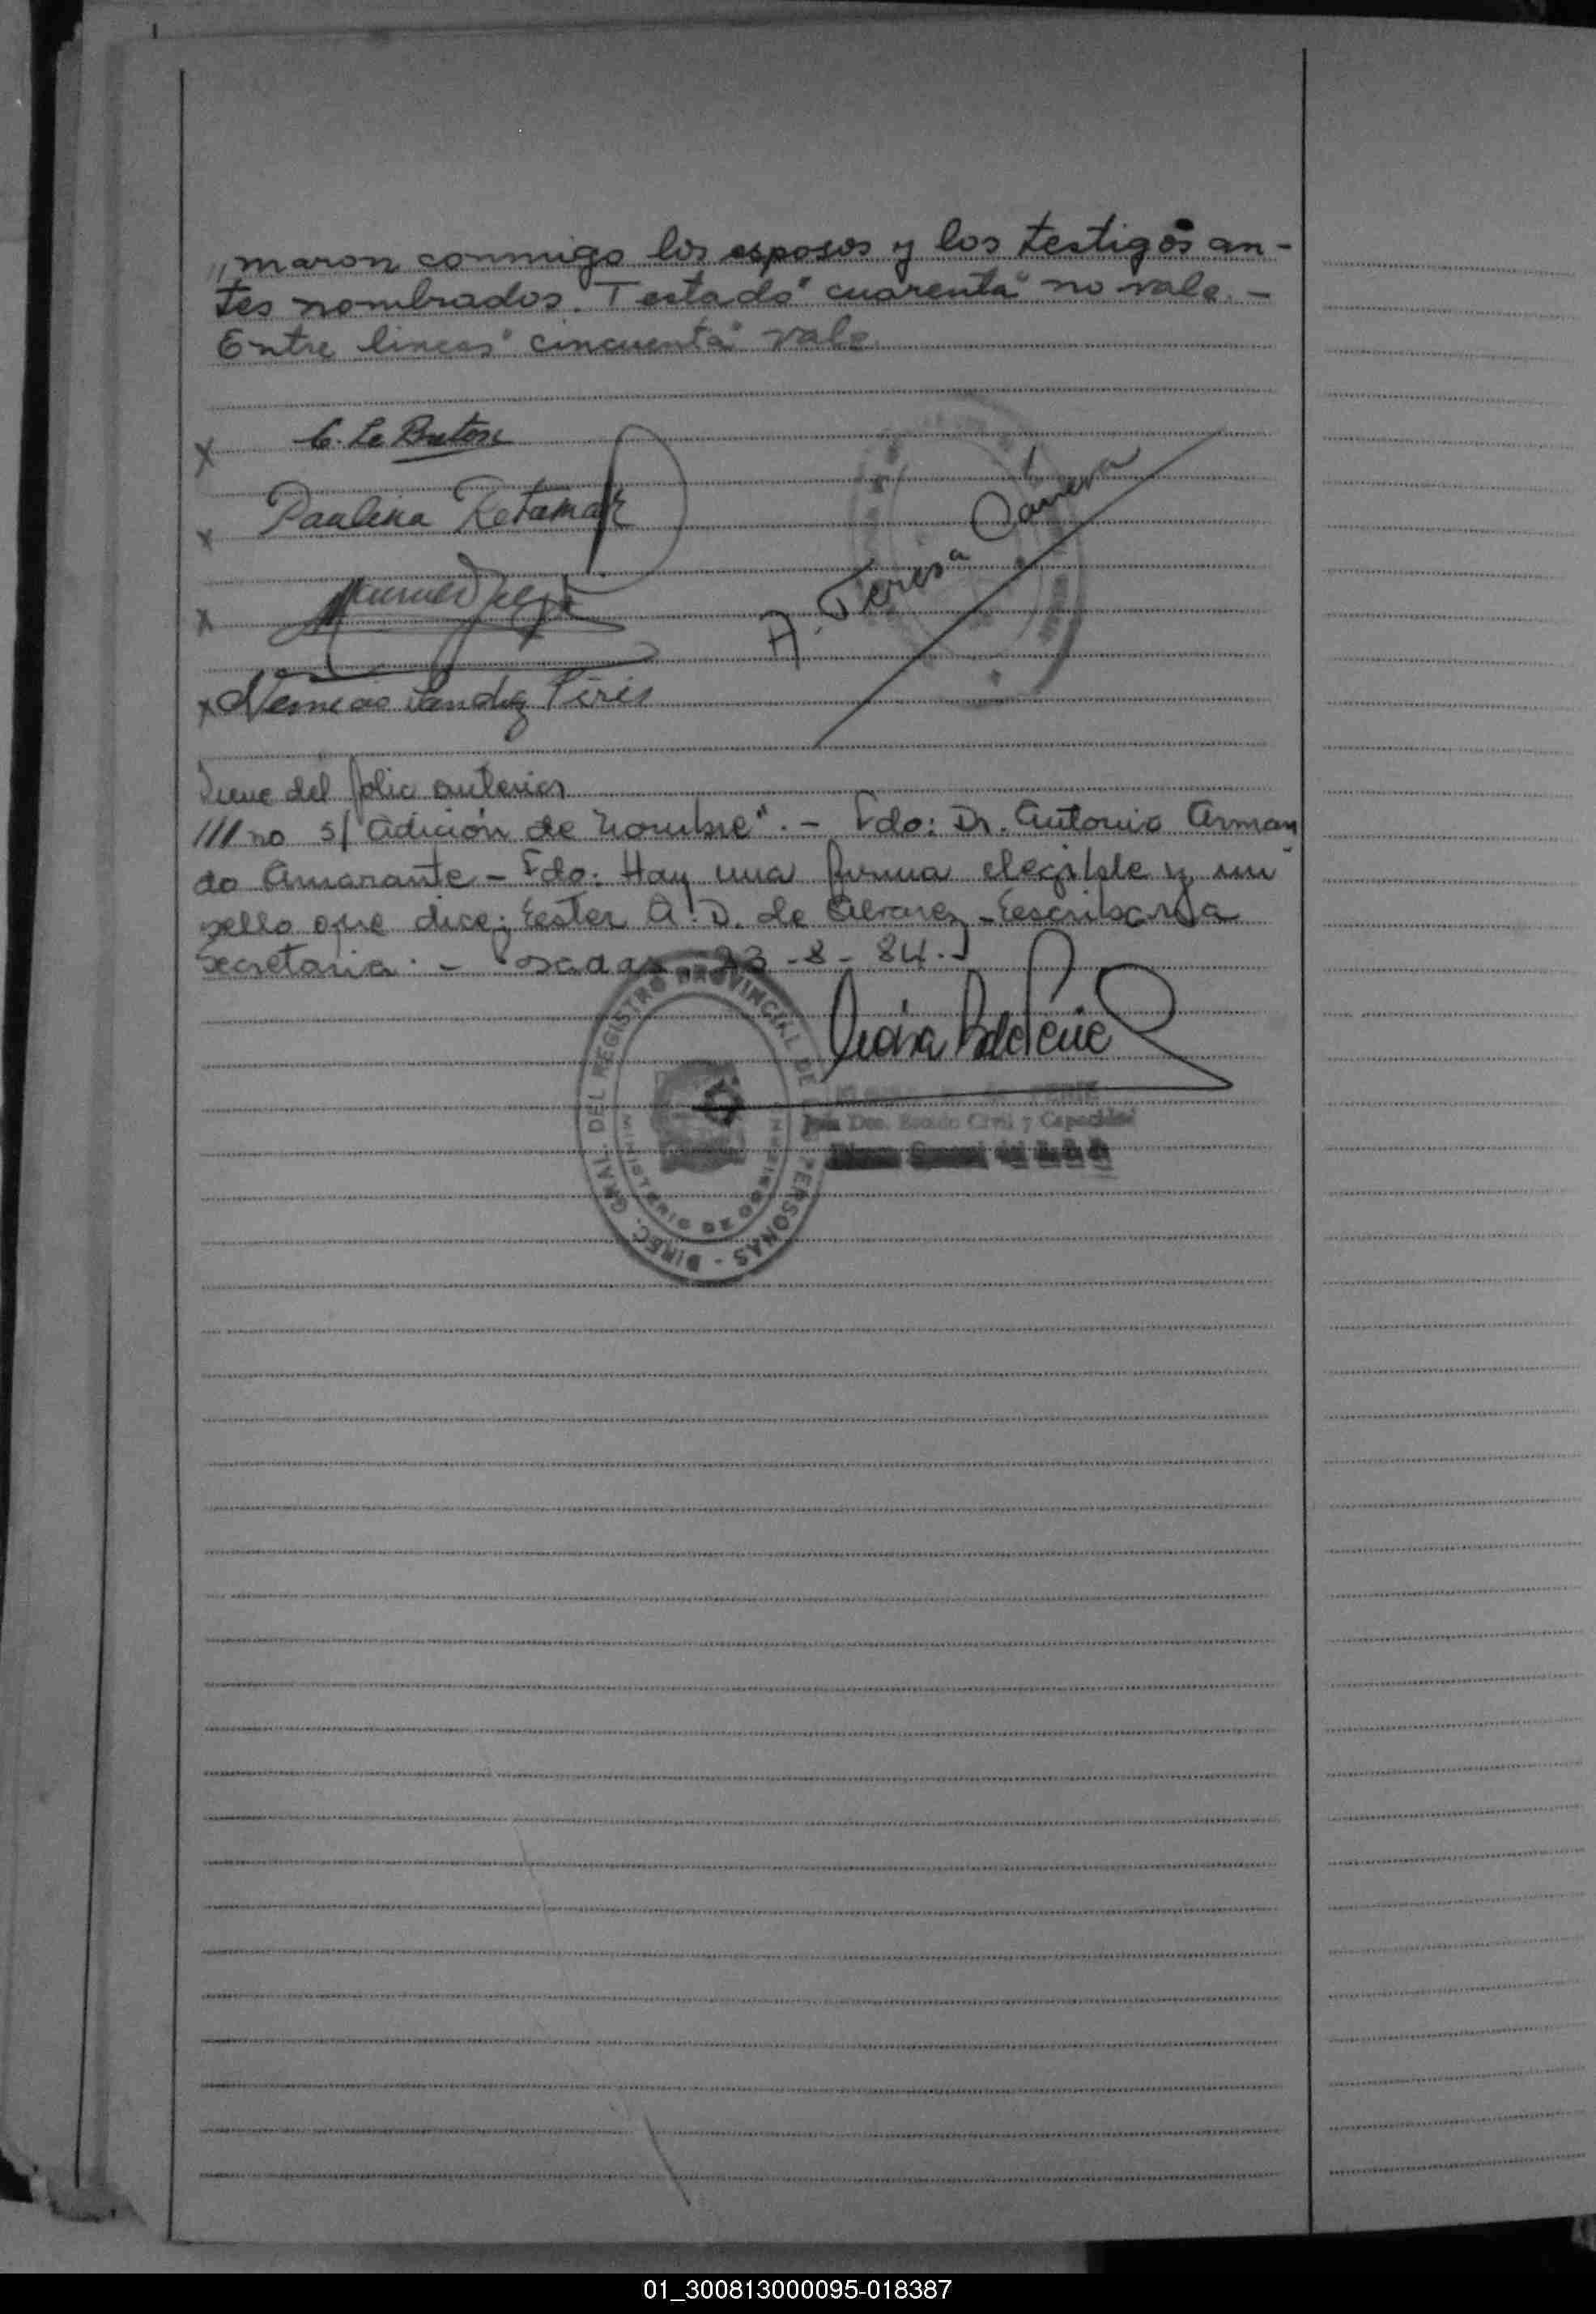 ,, maron conmigo los esposos y los testigos an-
tes nombrados. Testado "cuarenta" no vale. -
Entre lineas "cincuenta" vale.
x C. Le Breton
x Paulina Retamar
x Manuel
A. Teresa
x Sandez Piris
Viene del folio anterior
/// no s/ Adición de nombre". - Fdo: Dr. Antonio Arman
do Amarante - Fdo: Hay una firma elegible y un
sello que dice: Ester A. D. de Alvarez - Escribana
Secretaria. - Posadas 23 - 8 - 84. -
DIREC. GRAL. DEL REGISTRO PROVINCIAL DE PERSONAS -
MINISTERIO DE GOBIERNO
Jefa Dto. Estado Civil y Capacidad
01_300813000095-018387